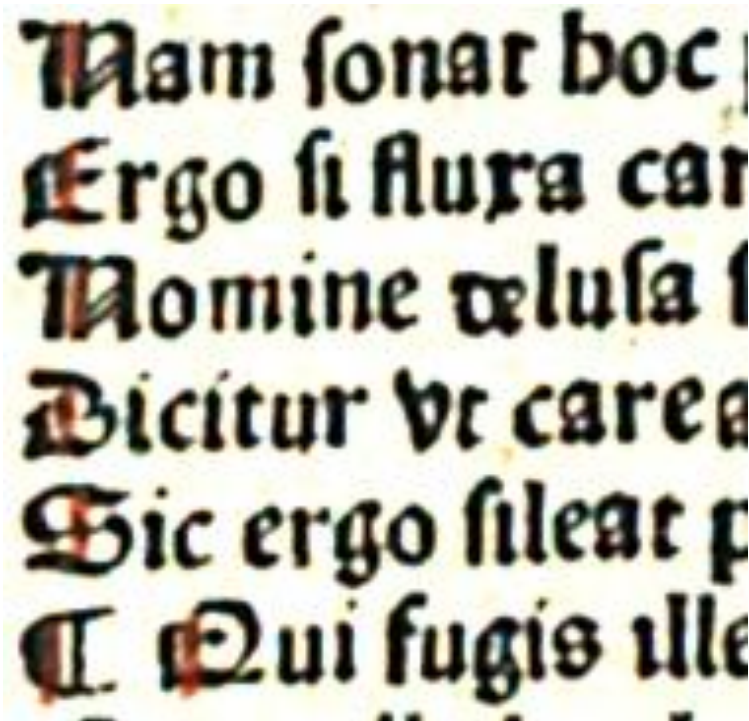 Nam ſonat hoc
Ergo ſi fluxa
Nomine deluſa
Dicitur vt
Sic ergo ſileat
¶ Qui fugis